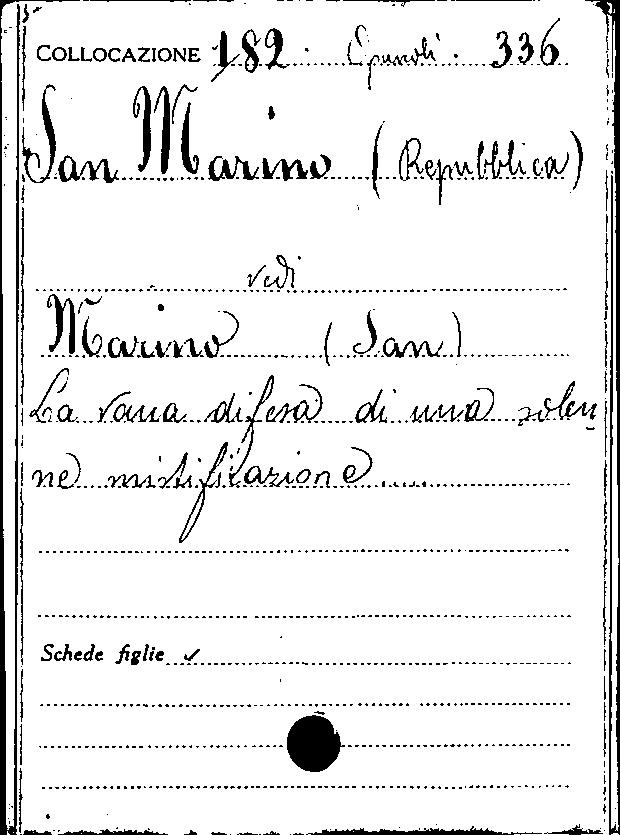 COLLOCAZIONE 182. 336
San Marino (Repubblica)
vedi
Marino (San)
La vana difesa di una solen
ne mistificazione.....
Schede figlie ✓